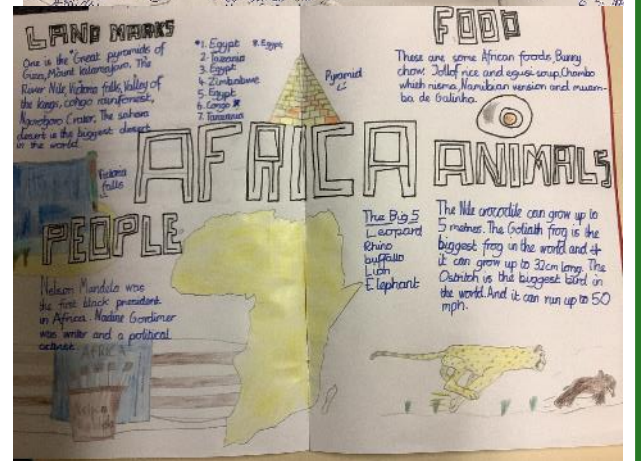 LAND MARKS
One is the "Great pyramids of
Giza, Mount kalamajaro. The
River Nile, Victoria falls, Valley of
the kings, congo rainforest,
Ngorogoro Crater. The sahara
desert is the biggest desert
in the world.
*1. Egypt
2. Tanzania
3. Egypt
4. Zimbabwe
5. Egypt
6. Congo
7. Tanzania
Egypt
Pyramid
Victoria
falls
FOOD
These are some African foods, Bunny
chow. Jollof rice and egusi soup, Chambo
which nsima, Namibian venison and muam-
ba de Galinha.
AFRICA
PEOPLE
Nelson Mandela was
the first black president
in Africa. Nadine Gordimer
was writer and a political
AFRICA
The Big 5
Leopard
Rhino
buffallo
Lion
Elephant
ANIMALS
The Nile crocodile can grow up to
5 metres. The Goliath frog is the
biggest frog in the world and
it can grow up to 32cm long. The
Ostritch is the biggest bird in
the world. And it can run up to 50
mph.